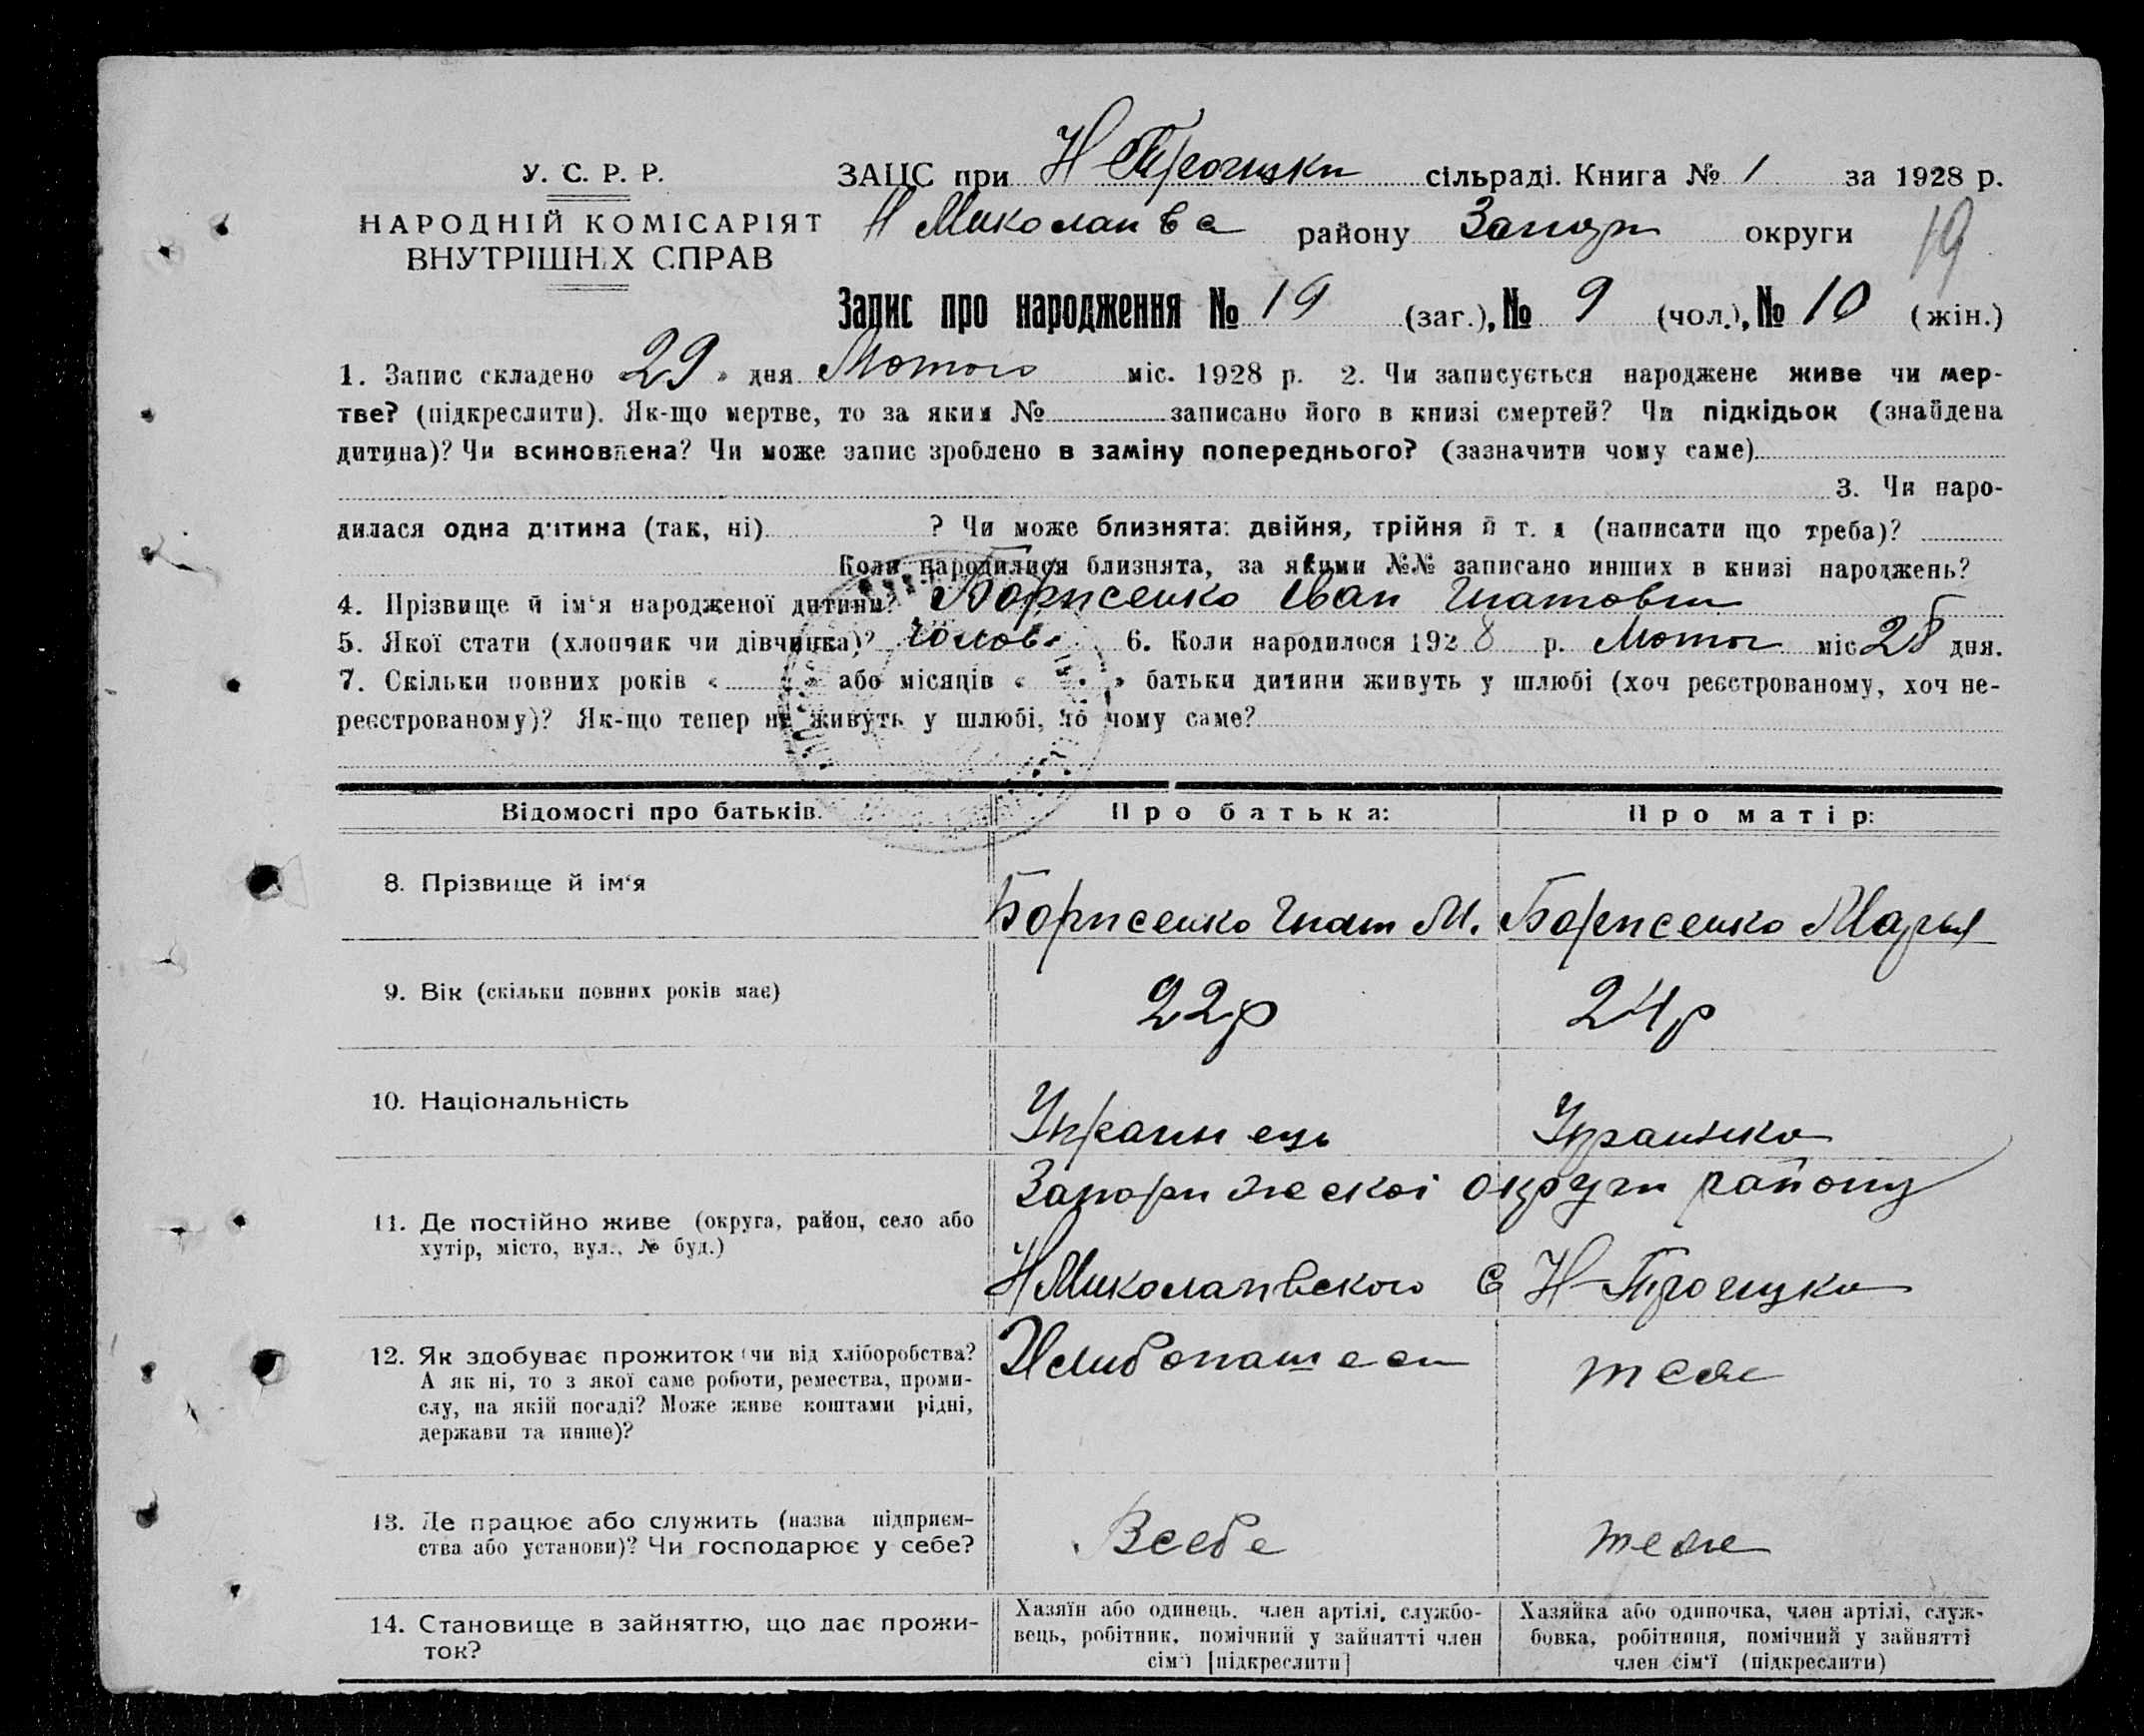 У. С. Р. Р.
НАРОДНІЙ КОМІСАРІЯТ
ВНУТРІШНІХ СПРАВ
ЗАЦС при Н Троицки сільраді. Книга № 1 за 1928 р.
Н Миколаивка району Запор округи
19
Запис про народження № 19 (заг.), № 9 (чол.), № 10 (жін.)
1. Запис складено 29 » дня Лютого міс. 1928 р. 2. Чи записується народжене живе чи мер-
тве? (підкреслити). Як-що мертве, то за яким № записано його в книзі смертей? Чи підкідьок (знайдена
дитина)? Чи всиновлена? Чи може запис зроблено в заміну попереднього? (зазначити чому саме)
3. Чи наро-
дилася одна дитина (так, ні) ? Чи може близнята: двійня, трійня й т. д (написати що треба)?
Коли народилися близнята, за якими №№ записано инших в книзі народжень?
4. Прізвище й ім‘я народженої дитини? Борисенко Іван Гнатович
5. Якої стати (хлопчик чи дівчинка)? чолов. 6. Коли народилося 1928 р. Лютог міс 28 дня.
7. Скільки повних років « » або місяців « » батьки дитини живуть у шлюбі (хоч реєстрованому, хоч не-
реєстрованому)? Як-що тепер не живуть у шлюбі, то чому саме?
Відомості про батьків. Про батька: Про матір:
8. Прізвище й ім‘я Борисенко Гнат М. Борисенко Марья
9. Вік (скільки повних років має) 22р 24р
10. Національність Украинець Украинка
Запорижскоі округи району
11. Де постійно живе (округа, район, село або
хутір, місто, вул., № буд.)
НМиколаивского с Н-Троицка
12. Як здобуває прожиток (чи від хліборобства? Хлибопашест теж
А як ні, то з якої саме роботи, ремества, проми-
слу, на якій посаді? Може живе коштами рідні,
держави та инше)?
13. Де працює або служить (назва підприєм- Всебе теже
ства або установи)? Чи господарює у себе?
14. Становище в зайняттю, що дає прожи-
ток?
Хазяїн або одинець, член артілі, службо-
вець, робітник, помічний у зайнятті член
сім‘ї [підкреслити]
Хазяйка або одиночка, член артілі, служ-
бовка, робітниця, помічний у зайнятті
член сім‘ї (підкреслити)